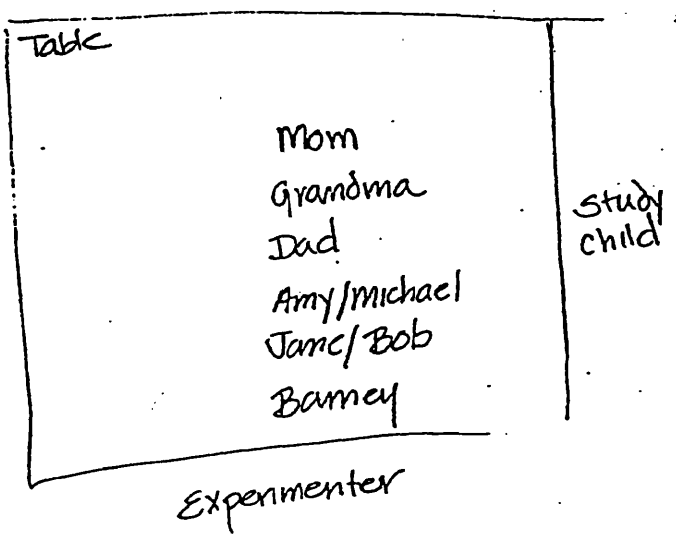 Table
Mom
Grandma
Dad
Amy/Michael
Jane/Bob
Barney
Study
child
Experimenter